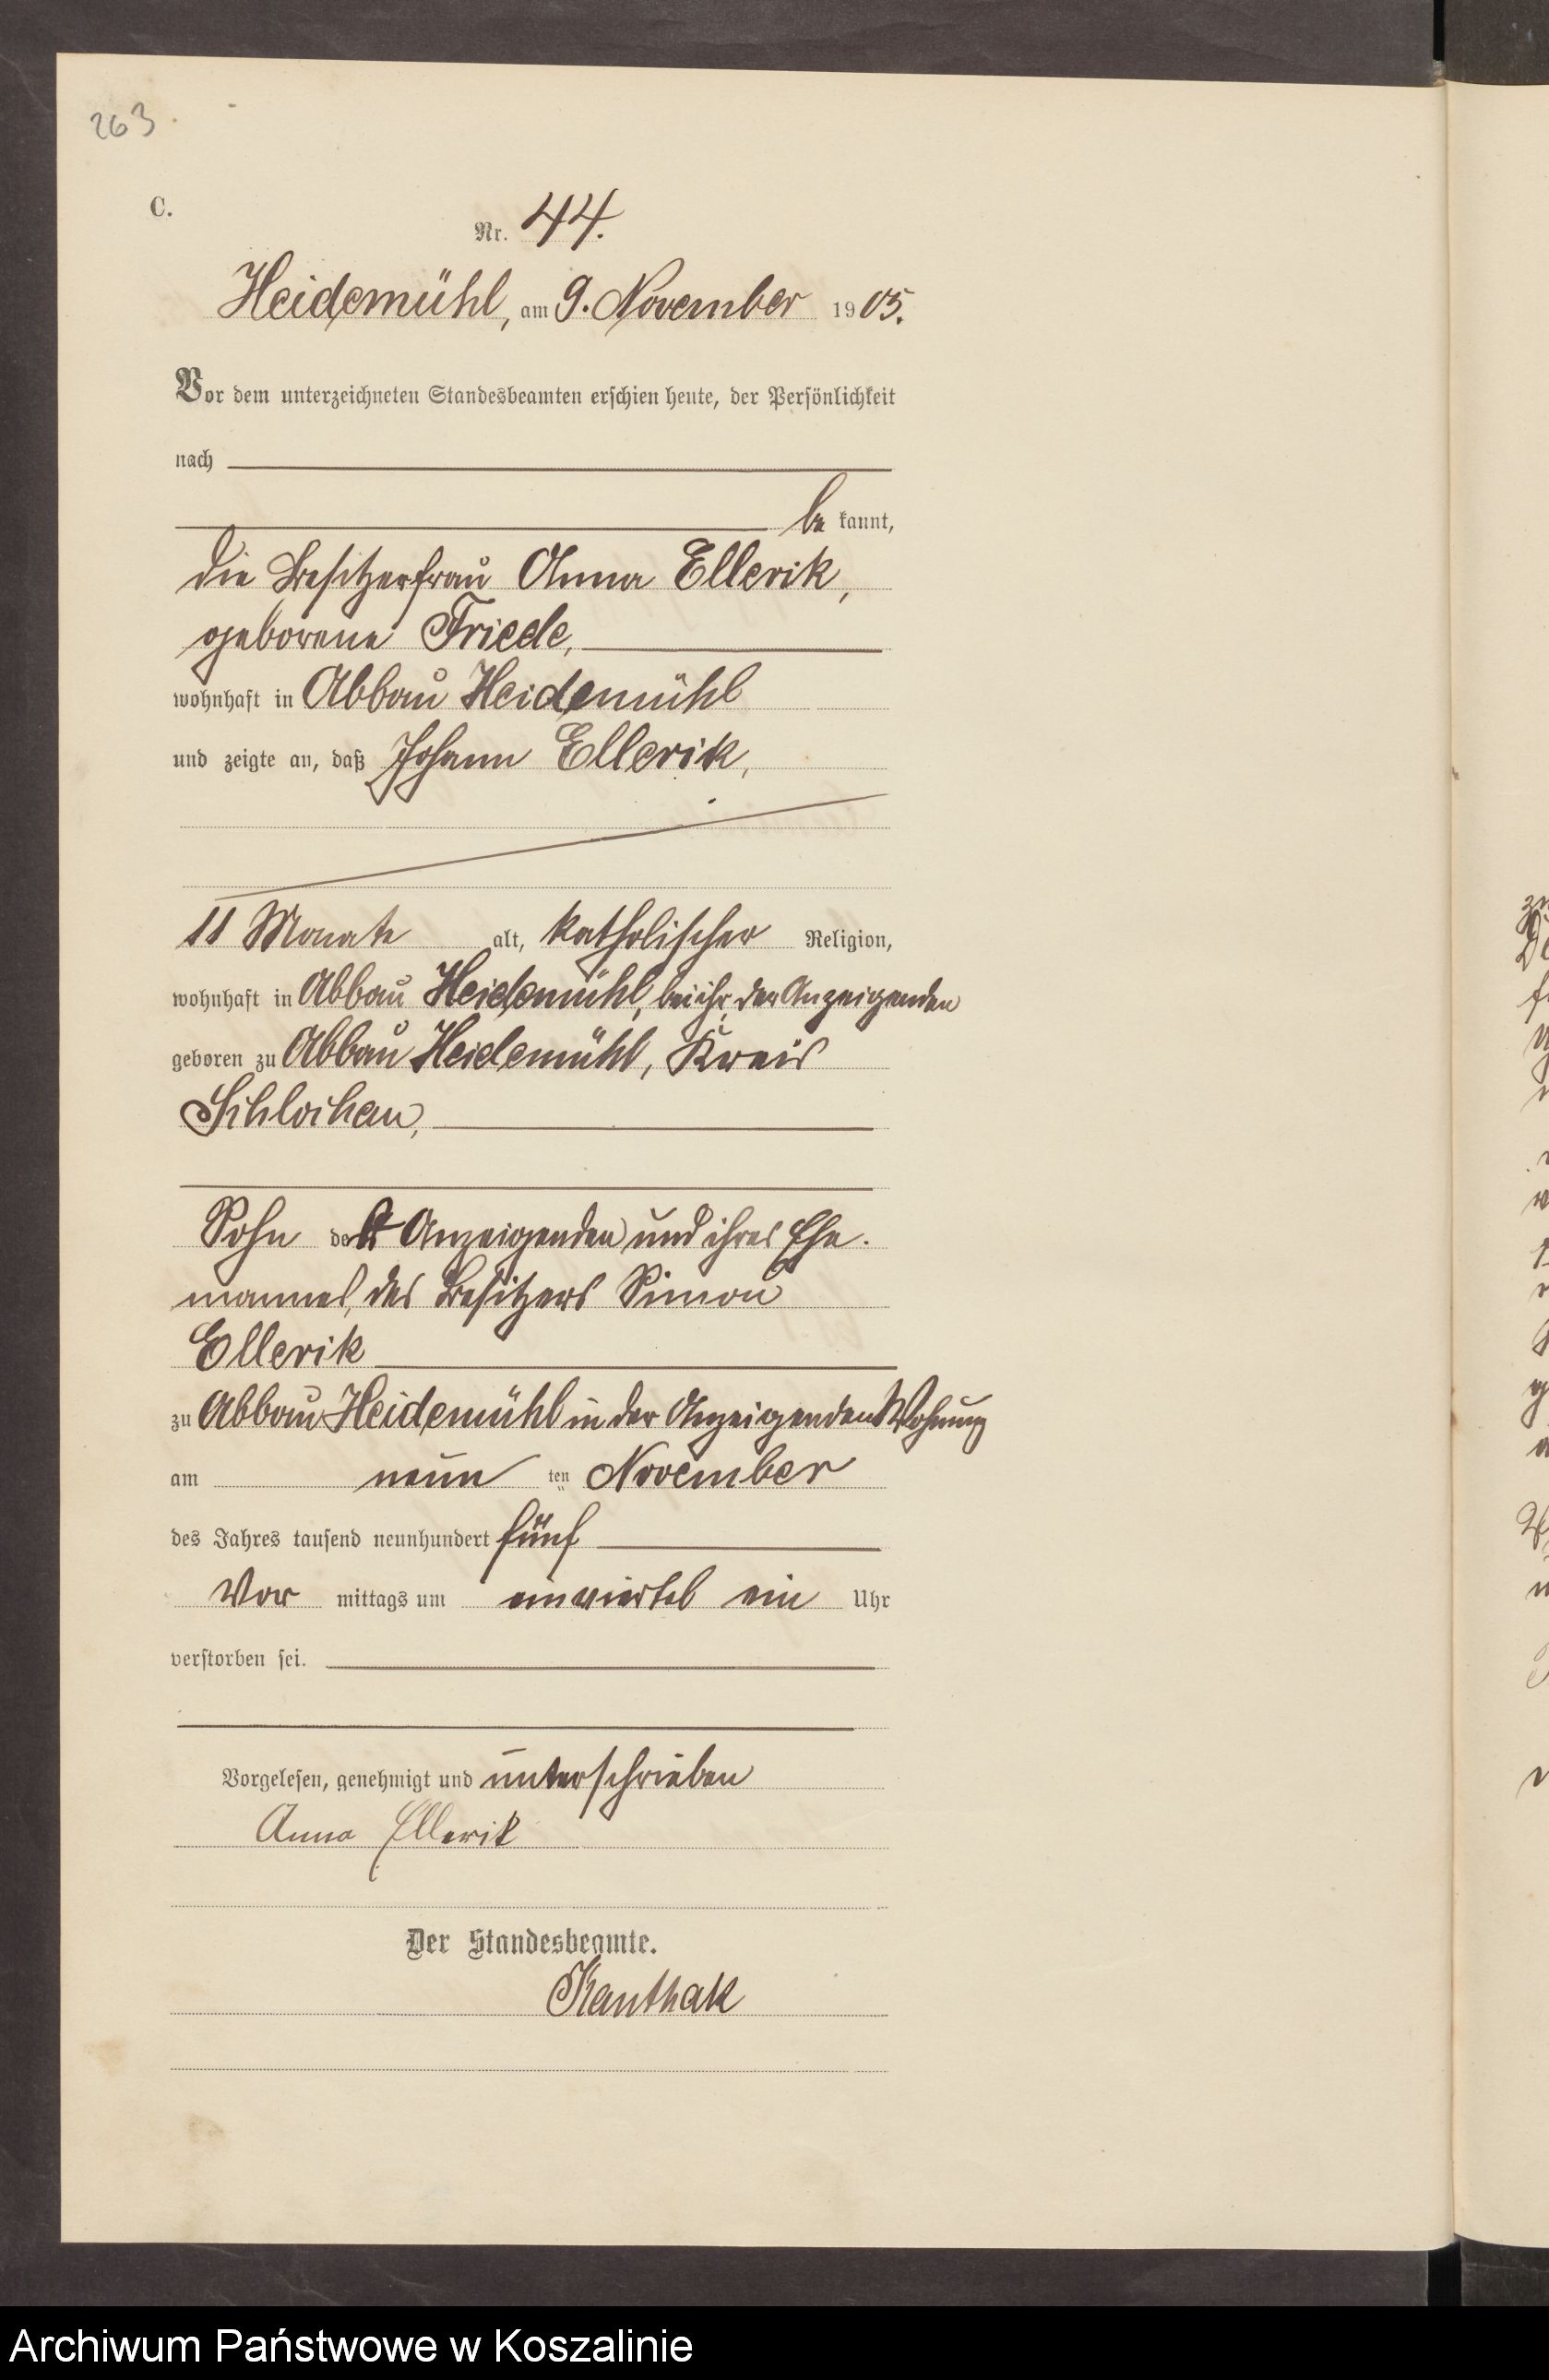 263.
C.
Nr. 44.
Heidemühl, am 9. November 1905.
Vor dem unterzeichneten Standesbeamten erschien heute, der Persönlichkeit
nach
be kannt,
die Besitzerfrau Anna Ellerik,
geborene Friede,
wohnhaft in Abbau Heidemühl
und zeigte an, daß Johann Ellerik,
11 Monate alt, katholischer Religion,
wohnhaft in Abbau Heidemühl, bei ihr, der Anzeigenden
geboren zu Abbau Heidemühl, Kreis
Schlochau,
Sohn der Anzeigenden und ihres Ehe-
mannes, des Besitzers Simon
Ellerik
zu Abbau Heidemühl in der Anzeigenden Wohnung
am neun ten November
des Jahres tausend neunhundert fünf
Vor mittags um einviertel ein Uhr
verstorben sei.
Vorgelesen, genehmigt und unterschrieben
Anna Ellerik
Der Standesbeamte.
Kanthak
Archiwum Państwowe w Koszalinie